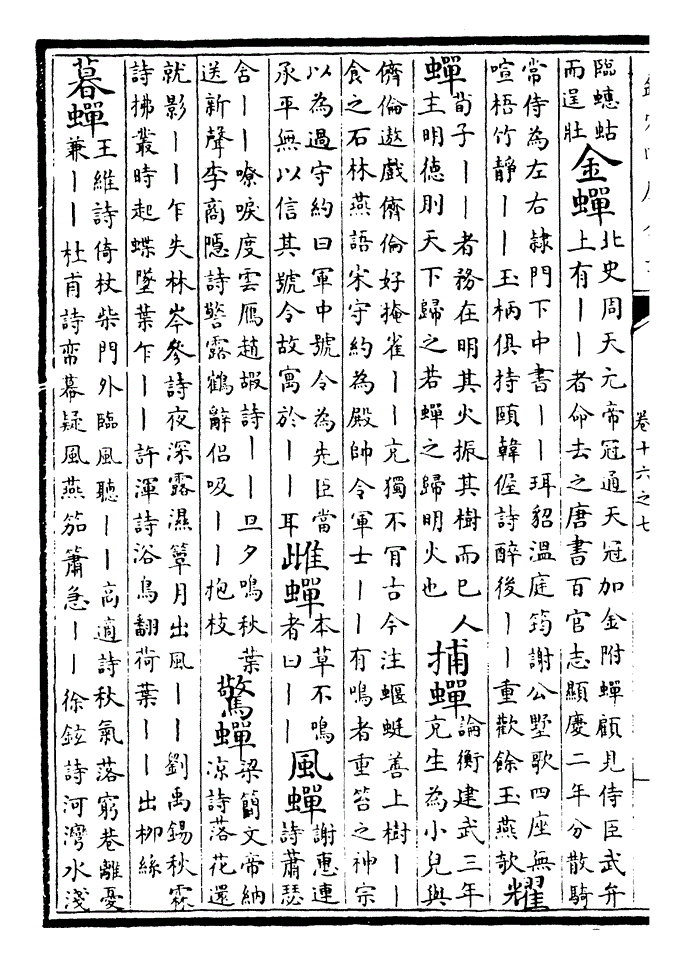 卷十六之七
臨蟪蛄
而逞壯
金蟬
北史周天元帝冠通天冠加金附蟬顧見侍臣武弁
上有丨丨者命去之唐書百官志顯慶二年分散騎
常侍為左右隸門下中書丨丨珥貂溫庭筠謝公墅歌四座無
喧梧竹靜丨丨玉柄俱持頤韓偓詩醉後丨丨重歡餘玉燕欹
耀
蟬
荀子丨丨者務在明其火振其樹而已人
主明德則天下歸之若蟬之歸明火也
捕蟬
論衡建武三年
充生為小兒與
儕倫遨戲儕倫好掩雀丨丨充獨不肎古今注蝘蜓善上樹丨丨
食之石林燕語宋守約為殿帥令軍士丨丨有鳴者重笞之神宗
以為過守約曰軍中號令為先臣當
承平無以信其號令故寓於丨丨耳
雌蟬
本草不鳴
者曰丨丨
風蟬
謝惠連
詩蕭瑟
含丨丨嘹唳度雲鴈趙嘏詩丨丨旦夕鳴秋葉
送新聲李商隱詩警露鶴辭侶吸丨丨抱枝
驚蟬
梁簡文帝納
涼詩落花還
就影丨丨乍失林岑參詩夜深露濕簟月出風丨丨劉禹錫秋霖
詩拂叢時起蝶墜葉乍丨丨許渾詩浴鳥翻荷葉丨丨出柳絲
暮蟬
王維詩倚杖柴門外臨風聽丨丨高適詩秋氣落窮巷離憂
兼丨丨杜甫詩帟幕疑風燕笳簫急丨丨徐鉉詩河灣水淺